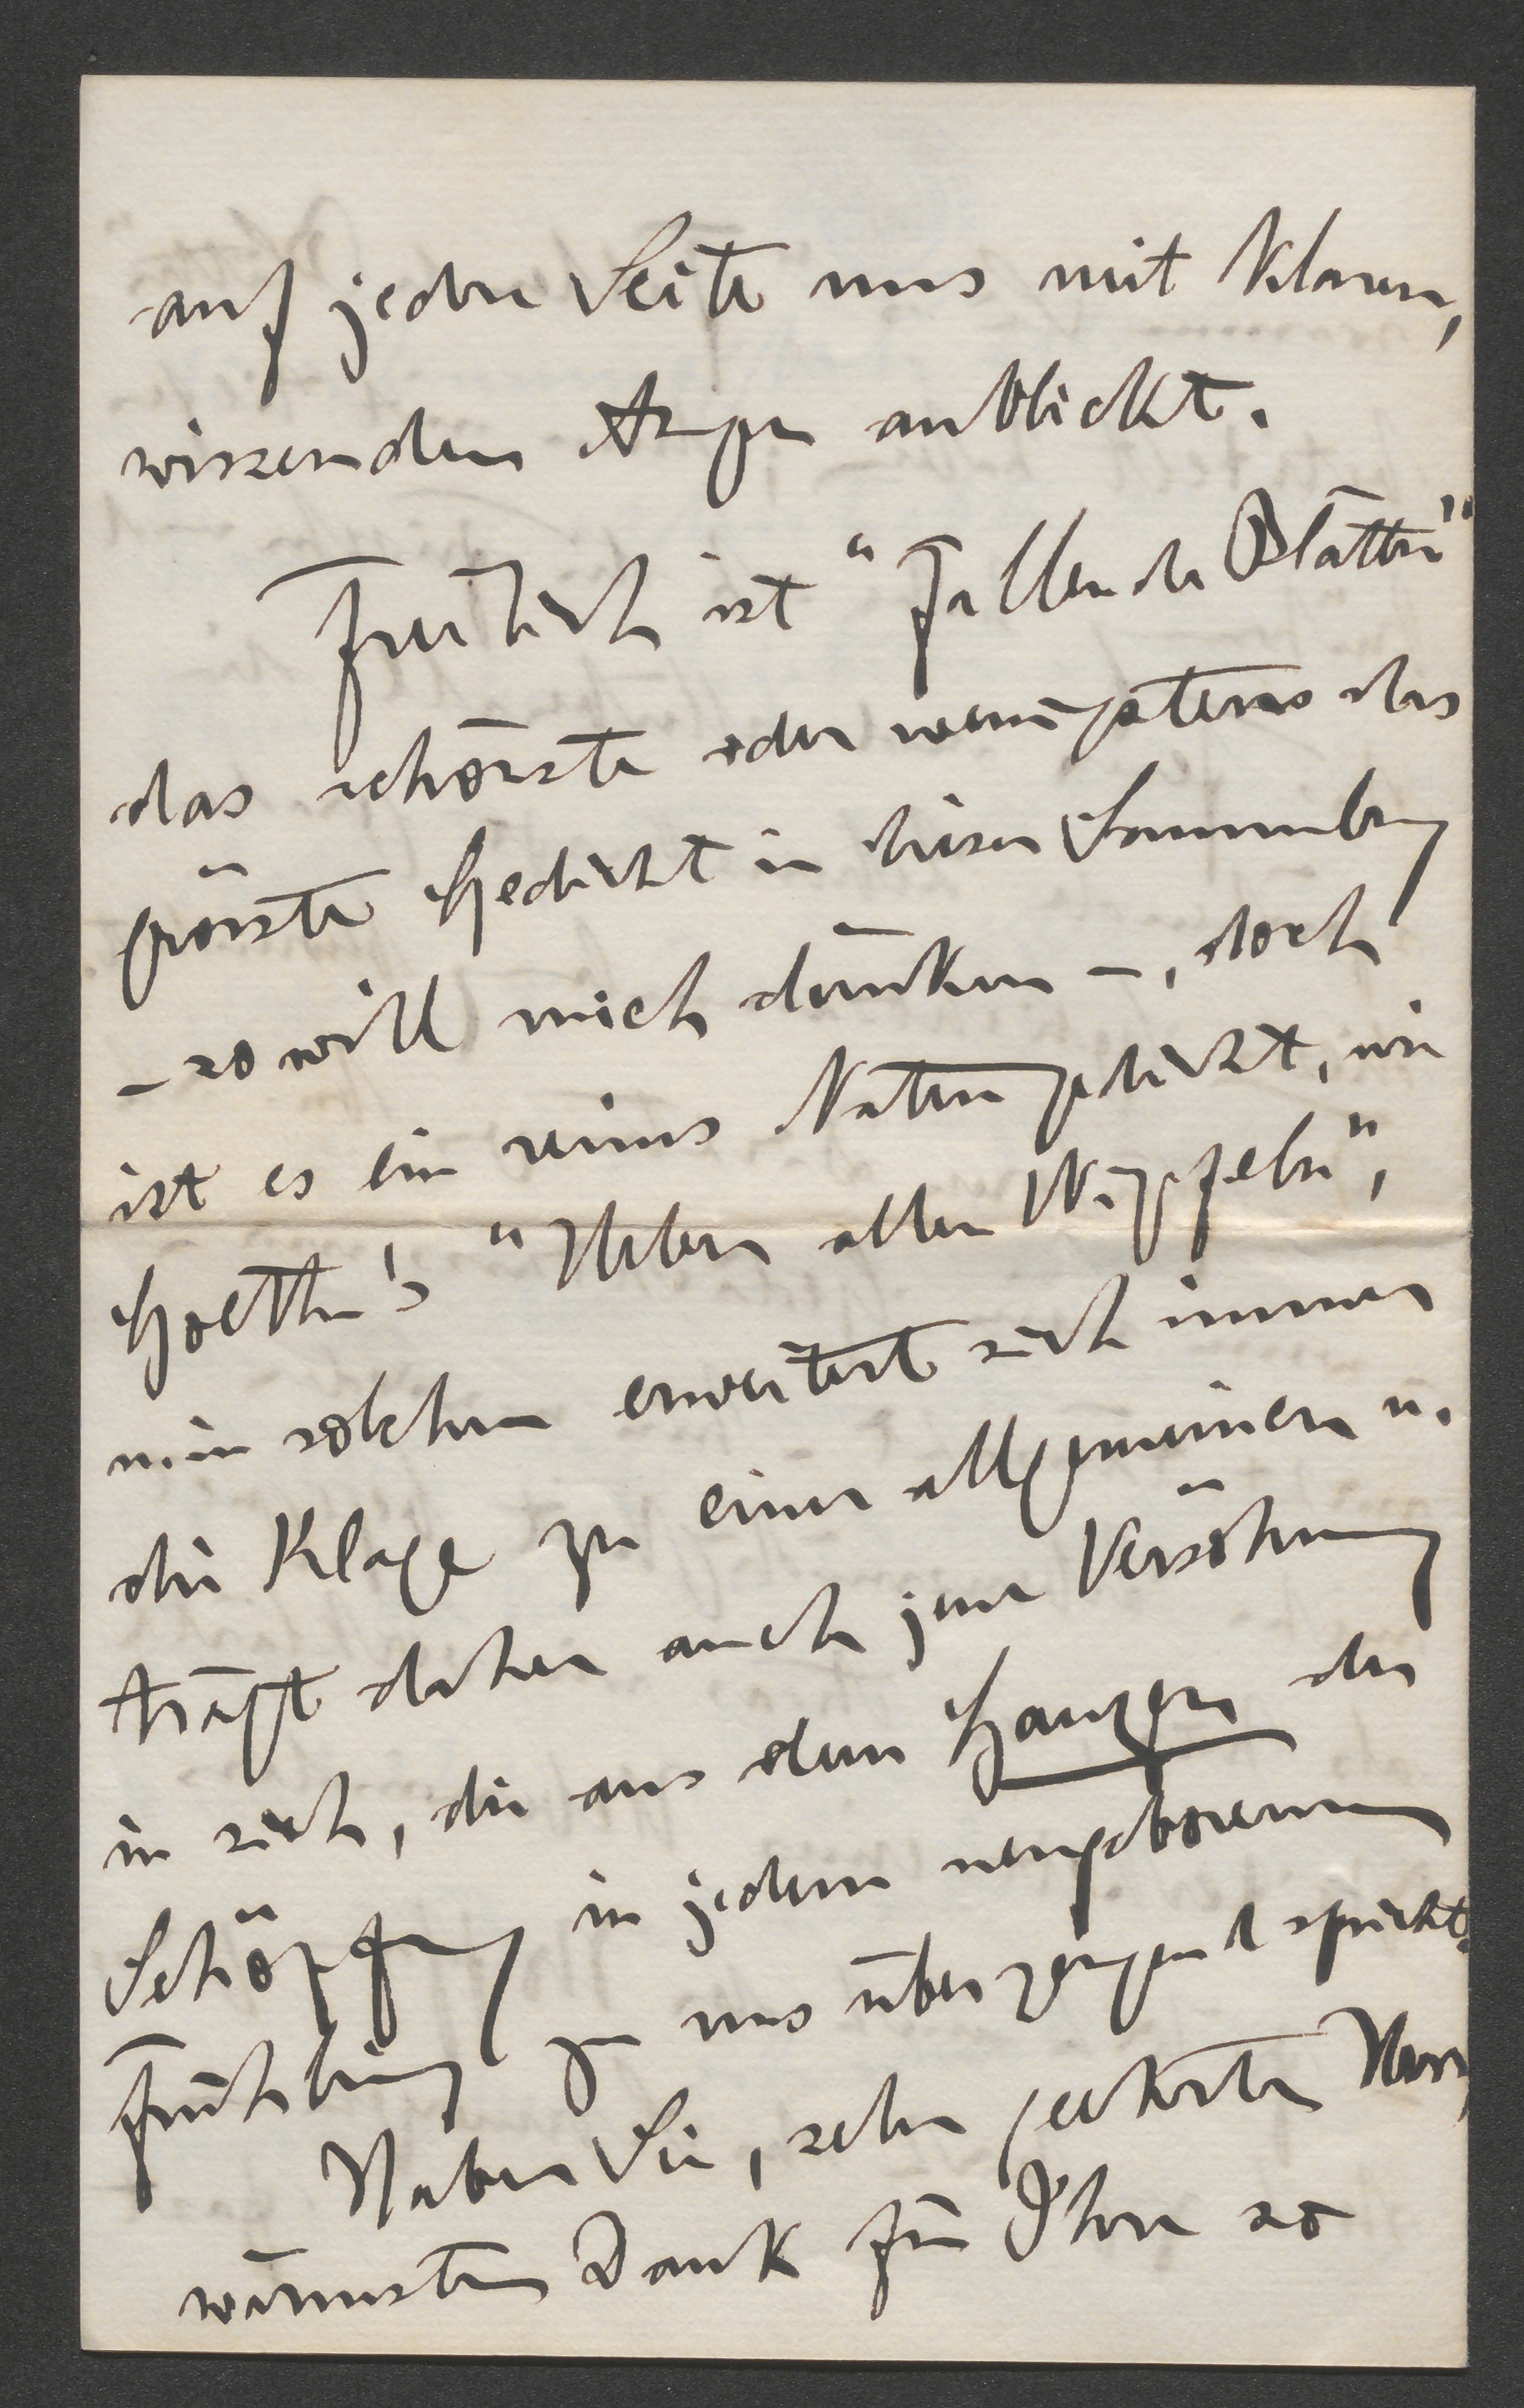 auf jeder Seite uns mit klaren,
wissenden Augen anblickt.
Freilich ist "Fallende Blätter"
das schönste oder wenigstens das
grösste Gedicht in dieser Sammlung
– so will mich dünken –, doch
ist es ein reines Naturgedicht, wie
Goethe's "Ueber allen Wipfeln",
u. in solchem erweitert sich immer
die Klage zu einer allgemeinen u.
trägt daher auch jene Versöhnung
in sich, die aus dem Ganzen der
Schöpfung in jedem neugeborenen
Frühling zu uns überzeugend spricht.
Haben Sie, sehr geehrter Herr,
wärmsten Dank für Ihre so